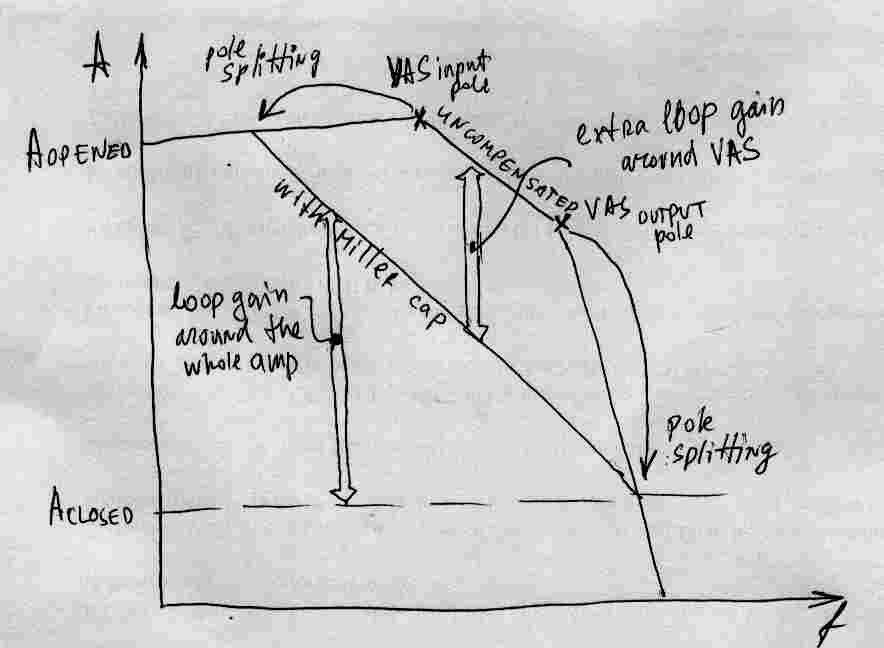 A
pole
splitting
VAS input
pole
AOPENED
UNCOMPENSATED
extra loop gain
around VAS
VAS OUTPUT
pole
with Miller cap
loop gain
around the
whole amp
pole
splitting
ACLOSED
f